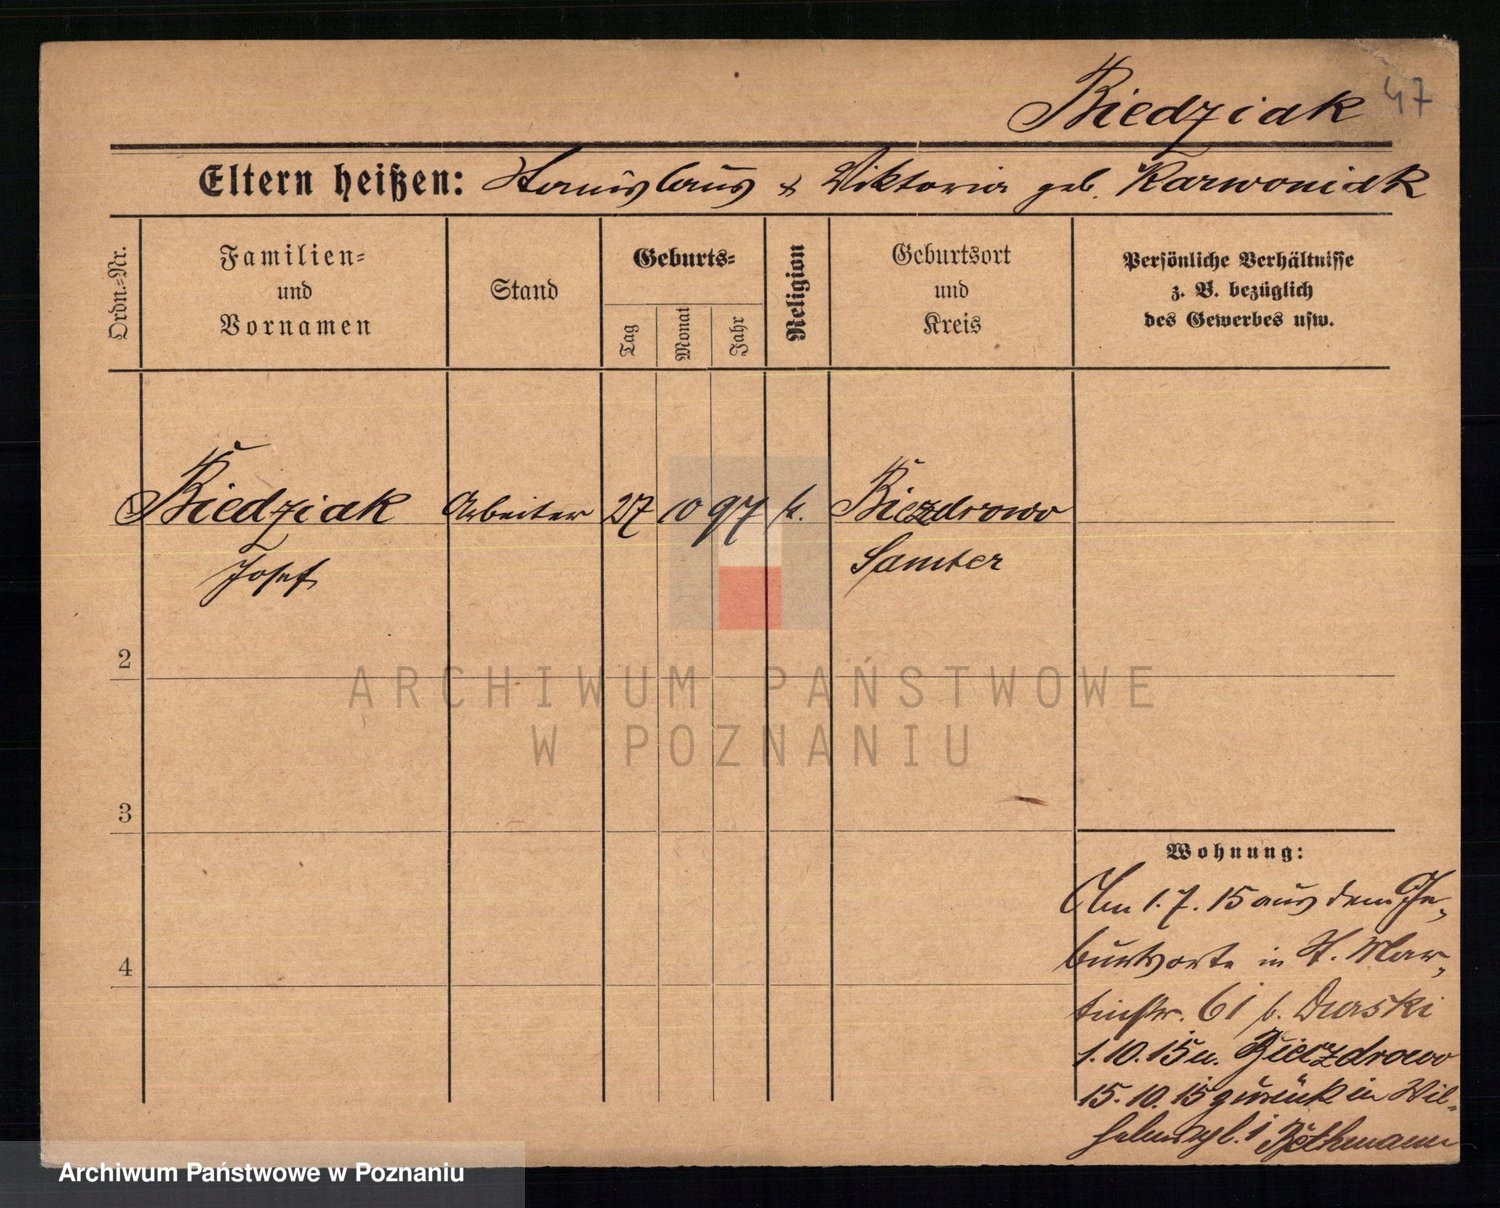 Biedziak 47
Eltern heißen: Stanislaus & Viktoria geb. Karwoniak
Ordn.-Nr.
Familien-
und
Vornamen
Stand
Geburts-
Tag
Monat
Jahr
Religion
Geburtsort
und
Kreis
Persönliche Verhältnisse
z. B. bezüglich
des Gewerbes usw.
Biedziak Arbeiter 27 10 97 k. Biezdrowo
Josef Samter
2
3
4
Wohnung:
Am 1. 7. 15 aus dem Ge-
burtsorte in St. Mar-
tinstr. 61 b. Durski
1. 10. 15 n. Biezdrowo
15. 10. 15 zurück in Wil-
helmspl. 1 Bethmann
ARCHIWUM PAŃSTWOWE
W POZNANIU
Archiwum Państwowe w Poznaniu